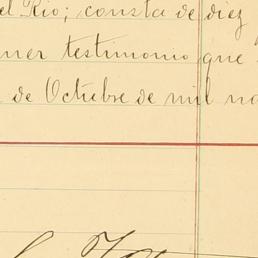 el Rio; consta de diez
mer testimonio que
de Octubre de mil no